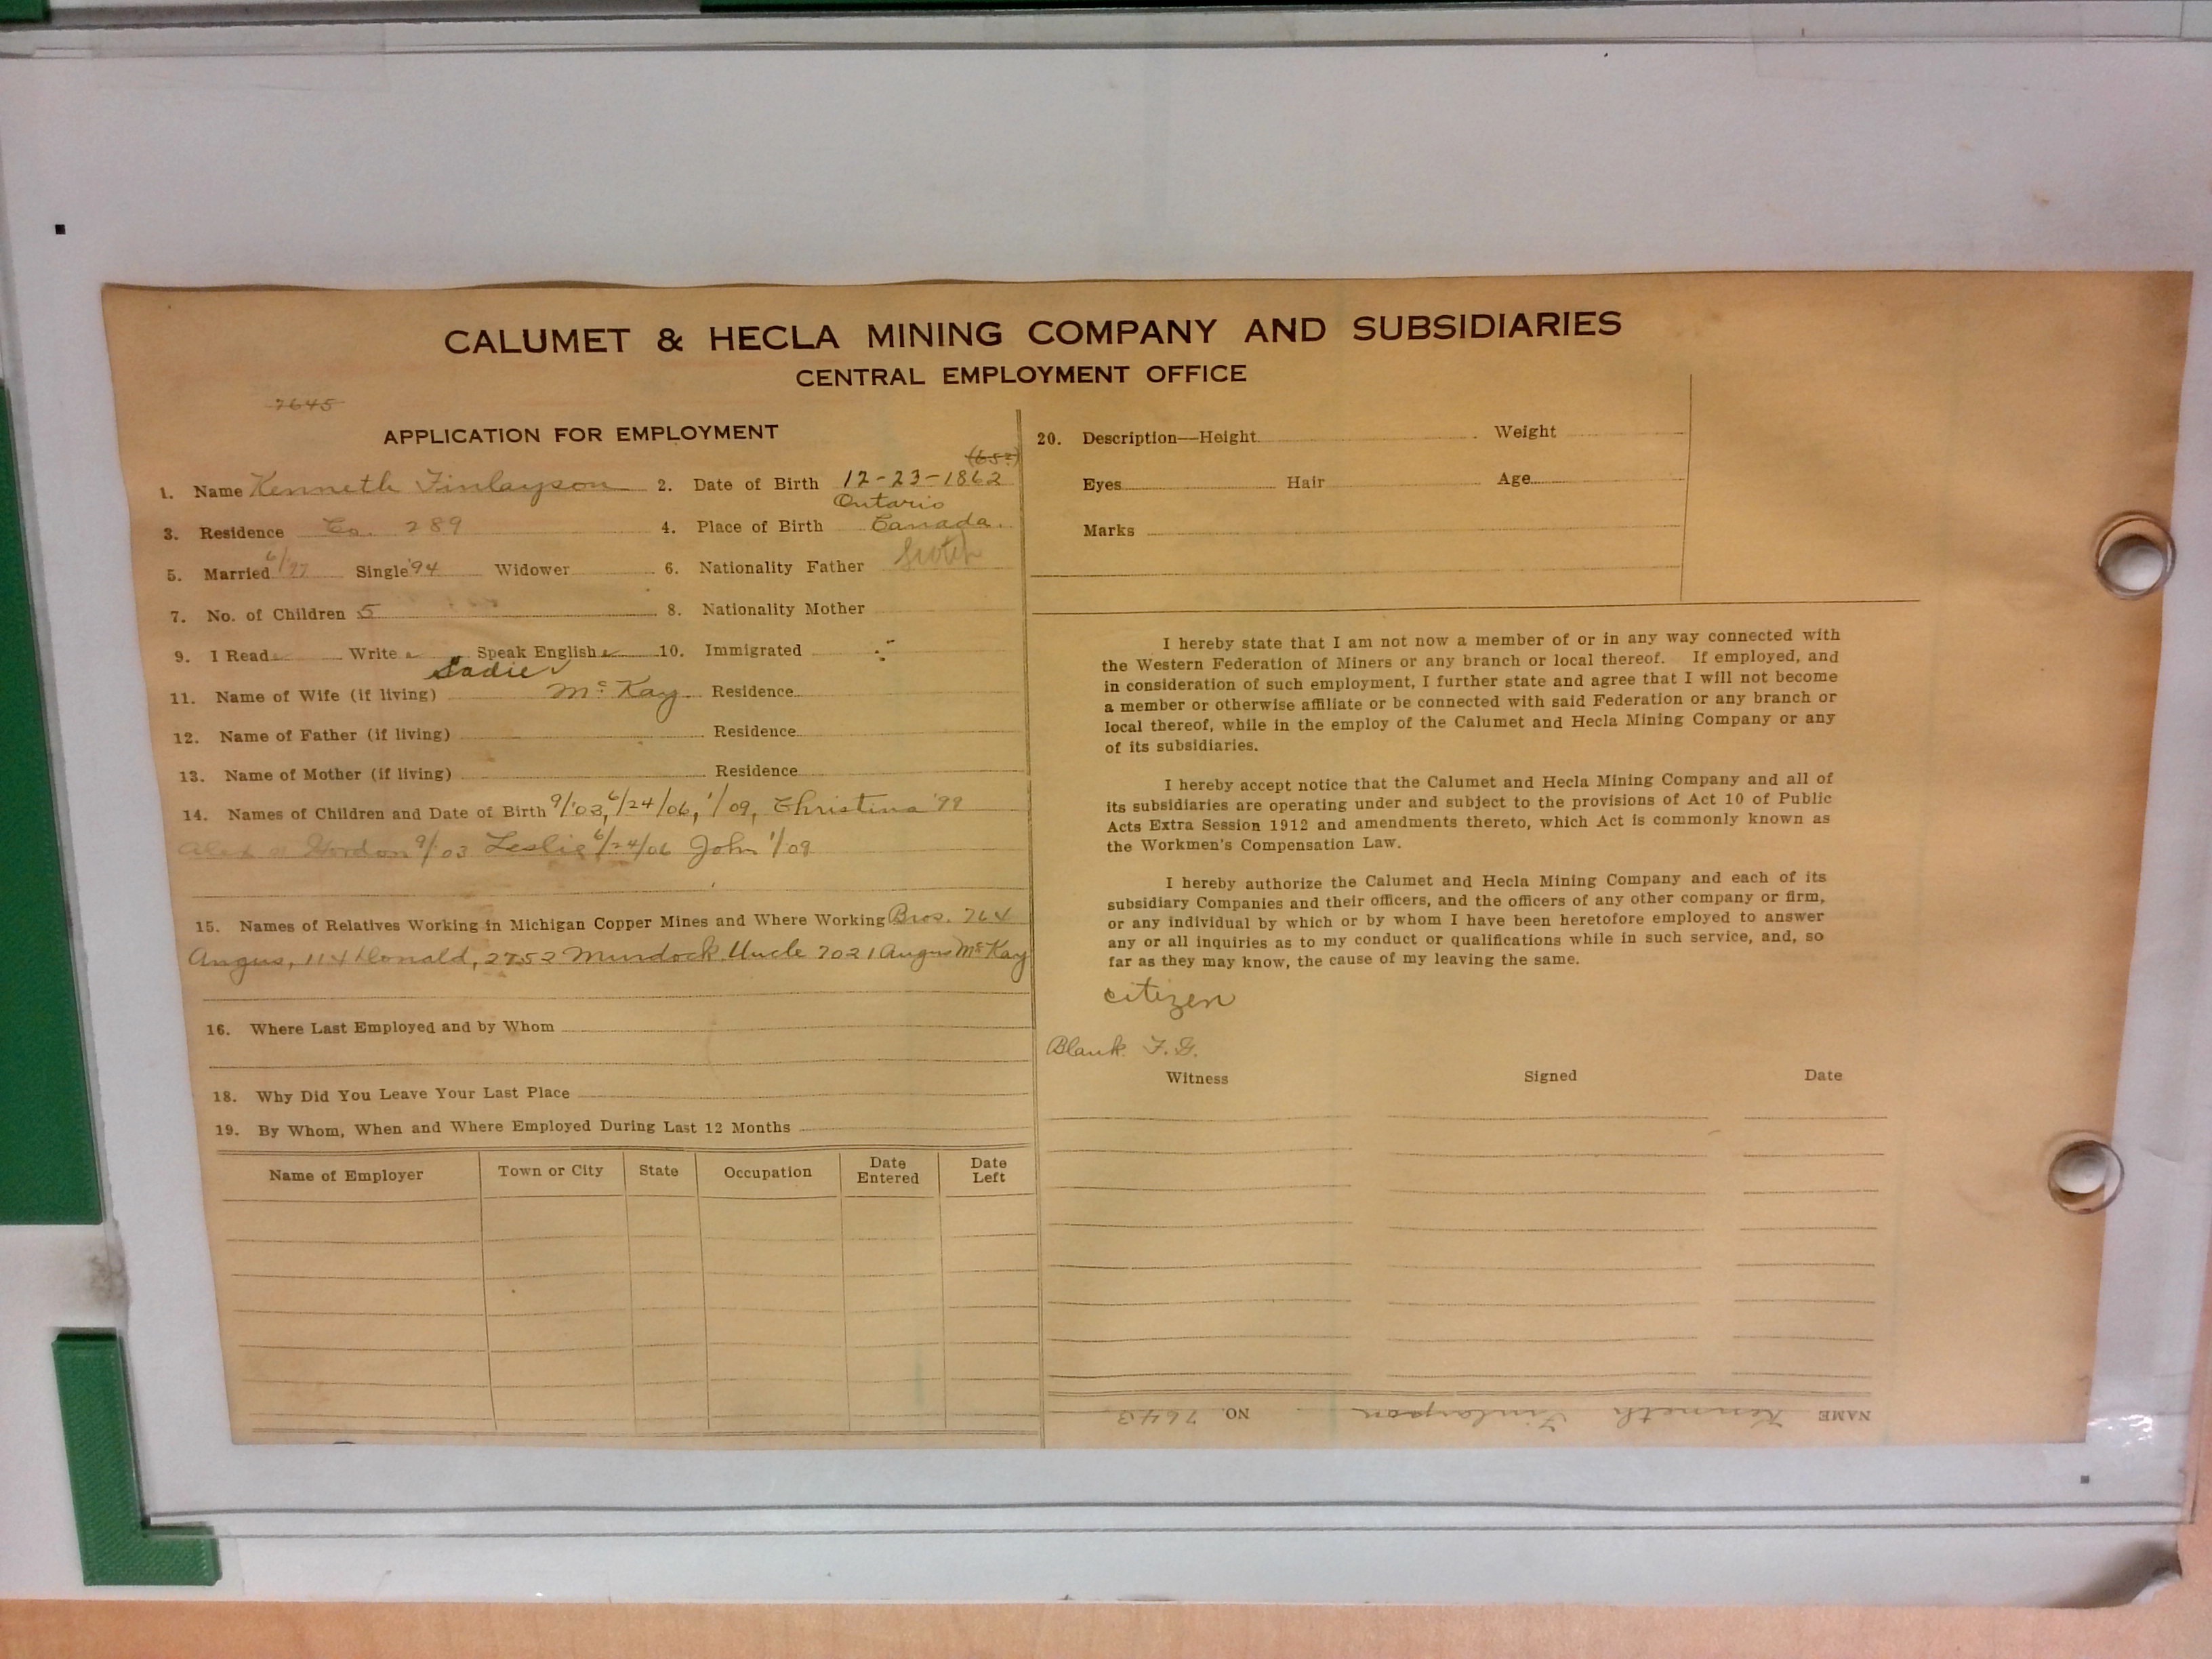 CALUMET & HECLA MINING COMPANY AND SUBSIDIARIES
CENTRAL EMPLOYMENT OFFICE
7645
APPLICATION FOR EMPLOYMENT
1. Name Kenneth Finlayson 2. Date of Birth 12-23-1862
Ontario
3. Residence Co. 289 4. Place of Birth Canada.
5. Married 6/97 Single '94 Widower 6. Nationality Father Scotch
7. No. of Children 5 8. Nationality Mother
9. I Read Write Speak English 10. Immigrated
Sadie
11. Name of Wife (if living) McKay Residence
12. Name of Father (if living) Residence
13. Name of Mother (if living) Residence
14. Names of Children and Date of Birth 9/'03, 6/24/06, 1/09, Christina '99
Alex Gordon 9/03 Leslie 6/24/06 John 1/09
15. Names of Relatives Working in Michigan Copper Mines and Where Working Bros. 764
Angus, 114 Donald, 2752 Murdock. Uncle 7021 Angus McKay
16. Where Last Employed and by Whom
18. Why Did You Leave Your Last Place
19. By Whom, When and Where Employed During Last 12 Months
Name of Employer Town or City State Occupation Date Entered Date Left
20. Description—Height Weight
Eyes Hair Age
Marks
I hereby state that I am not now a member of or in any way connected with
the Western Federation of Miners or any branch or local thereof. If employed, and
in consideration of such employment, I further state and agree that I will not become
a member or otherwise affiliate or be connected with said Federation or any branch or
local thereof, while in the employ of the Calumet and Hecla Mining Company or any
of its subsidiaries.
I hereby accept notice that the Calumet and Hecla Mining Company and all of
its subsidiaries are operating under and subject to the provisions of Act 10 of Public
Acts Extra Session 1912 and amendments thereto, which Act is commonly known as
the Workmen's Compensation Law.
I hereby authorize the Calumet and Hecla Mining Company and each of its
subsidiary Companies and their officers, and the officers of any other company or firm,
or any individual by which or by whom I have been heretofore employed to answer
any or all inquiries as to my conduct or qualifications while in such service, and, so
far as they may know, the cause of my leaving the same.
citizen
Blank F.G.
Witness Signed Date
NAME Kenneth Finlayson NO. 7643